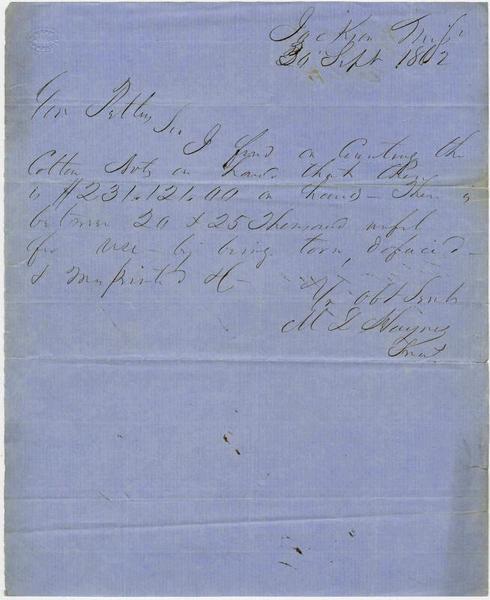 Jackson Miss
30 Sept 1862
Gov Pettus
Sir I find on Counting the
Cotton Notes on hand that there
is $231.121.00 on hand - There is
between 20 & 25 Thousand unfit
for use - by being torn, defaced -
& misprinted &c -
Yr obt Servt
M L Haynes
Treat.